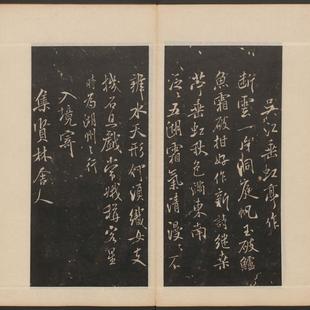 吳江垂虹亭作
斷雲一片洞庭帆玉破鱸
魚霜破柑好作新詩繼桑
苧垂虹秋色滿東南
泛泛五湖霜氣清漫漫不
辨水天形何須織女支
機石且戲嫦娥稱客星
時為湖州之行
入境寄
集賢林舍人